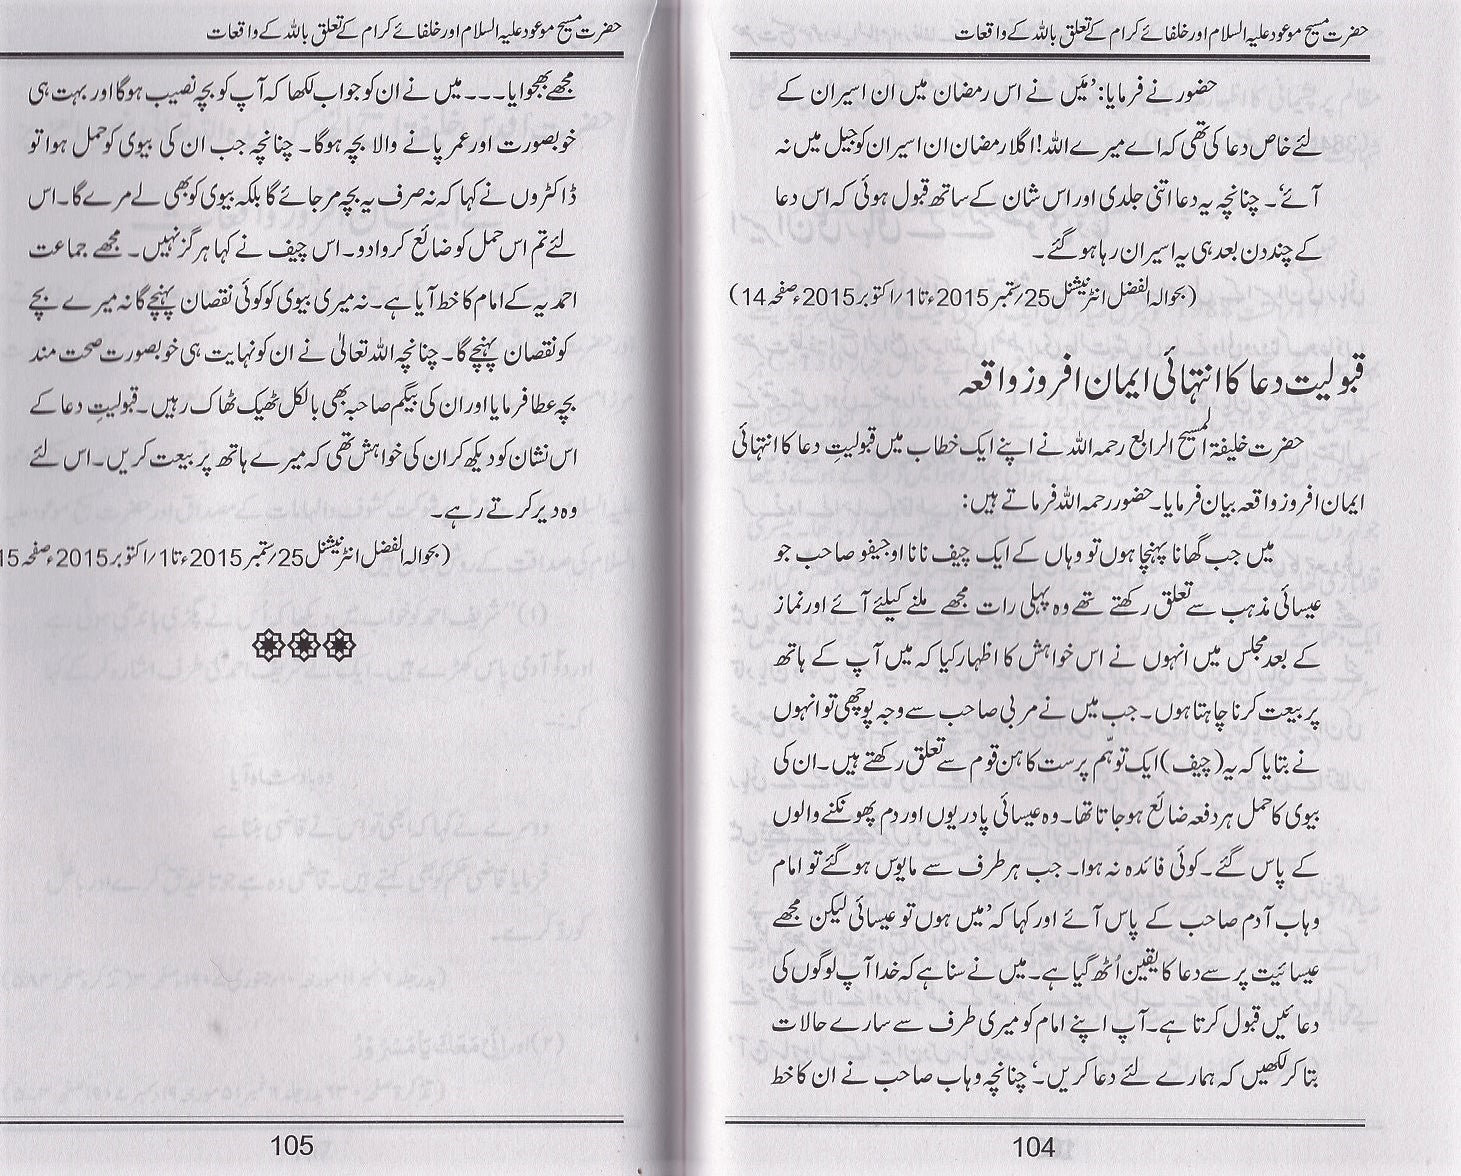 حضرت مسیح موعود علیہ السلام اور خلفائے کرام کے تعلق باللہ کے واقعات
حضور نے فرمایا: ’مَیں نے اس رمضان میں ان اسیران کے
لئے خاص دعا کی تھی کہ اے میرے اللہ! اگلا رمضان ان اسیران کو جیل میں نہ
آئے‘۔ چنانچہ یہ دعا اتنی جلدی اور اس شان کے ساتھ قبول ہوئی کہ اس دعا
کے چند دن بعد ہی یہ اسیران رہا ہو گئے۔
(بحوالہ الفضل انٹرنیشنل 25/ستمبر 2015ء تا 1/اکتوبر 2015ء صفحہ 14)
قبولیت دعا کا انتہائی ایمان افروز واقعہ
حضرت خلیفۃ المسیح الرابع رحمہ اللہ نے اپنے ایک خطاب میں قبولیتِ دعا کا انتہائی
ایمان افروز واقعہ بیان فرمایا۔ حضور رحمہ اللہ فرماتے ہیں:
میں جب گھانا پہنچا ہوں تو وہاں کے ایک چیف نانا اوجیفو صاحب جو
عیسائی مذہب سے تعلق رکھتے تھے وہ پہلی رات مجھے ملنے کیلئے آئے اور نماز
کے بعد مجلس میں انہوں نے اس خواہش کا اظہار کیا کہ میں آپ کے ہاتھ
پر بیعت کرنا چاہتا ہوں۔ جب میں نے مربی صاحب سے وجہ پوچھی تو انہوں
نے بتایا کہ یہ (چیف) ایک توہّم پرست کاہن قوم سے تعلق رکھتے ہیں۔ ان کی
بیوی کا حمل ہر دفعہ ضائع ہو جاتا تھا۔ وہ عیسائی پادریوں اور دم پھونکنے والوں
کے پاس گئے۔ کوئی فائدہ نہ ہوا۔ جب ہر طرف سے مایوس ہو گئے تو امام
وہاب آدم صاحب کے پاس آئے اور کہا کہ ’میں ہوں تو عیسائی لیکن مجھے
عیسائیت پر سے دعا کا یقین اُٹھ گیا ہے۔ میں نے سنا ہے کہ خدا آپ لوگوں کی
دعائیں قبول کرتا ہے۔ آپ اپنے امام کو میری طرف سے سارے حالات
بتا کر لکھیں کہ ہمارے لئے دعا کریں۔‘ چنانچہ وہاب صاحب نے ان کا خط
104
حضرت مسیح موعود علیہ السلام اور خلفائے کرام کے تعلق باللہ کے واقعات
مجھے بھجوایا۔۔۔ میں نے ان کو جواب لکھا کہ آپ کو بچہ نصیب ہوگا اور بہت ہی
خوبصورت اور عمر پانے والا بچہ ہوگا۔ چنانچہ جب ان کی بیوی کو حمل ہوا تو
ڈاکٹروں نے کہا کہ نہ صرف یہ بچہ مر جائے گا بلکہ بیوی کو بھی لے مرے گا۔ اس
لئے تم اس حمل کو ضائع کروا دو۔ اس چیف نے کہا ہرگز نہیں۔ مجھے جماعت
احمدیہ کے امام کا خط آیا ہے۔ نہ میری بیوی کو کوئی نقصان پہنچے گا نہ میرے بچے
کو نقصان پہنچے گا۔ چنانچہ اللہ تعالیٰ نے ان کو نہایت ہی خوبصورت صحت مند
بچہ عطا فرمایا اور ان کی بیگم صاحبہ بھی بالکل ٹھیک ٹھاک رہیں۔ قبولیتِ دعا کے
اس نشان کو دیکھ کر ان کی خواہش تھی کہ میرے ہاتھ پر بیعت کریں۔ اس لئے
وہ دیر کرتے رہے۔
(بحوالہ الفضل انٹرنیشنل 25/ستمبر 2015ء تا 1/اکتوبر 2015ء صفحہ 15
105